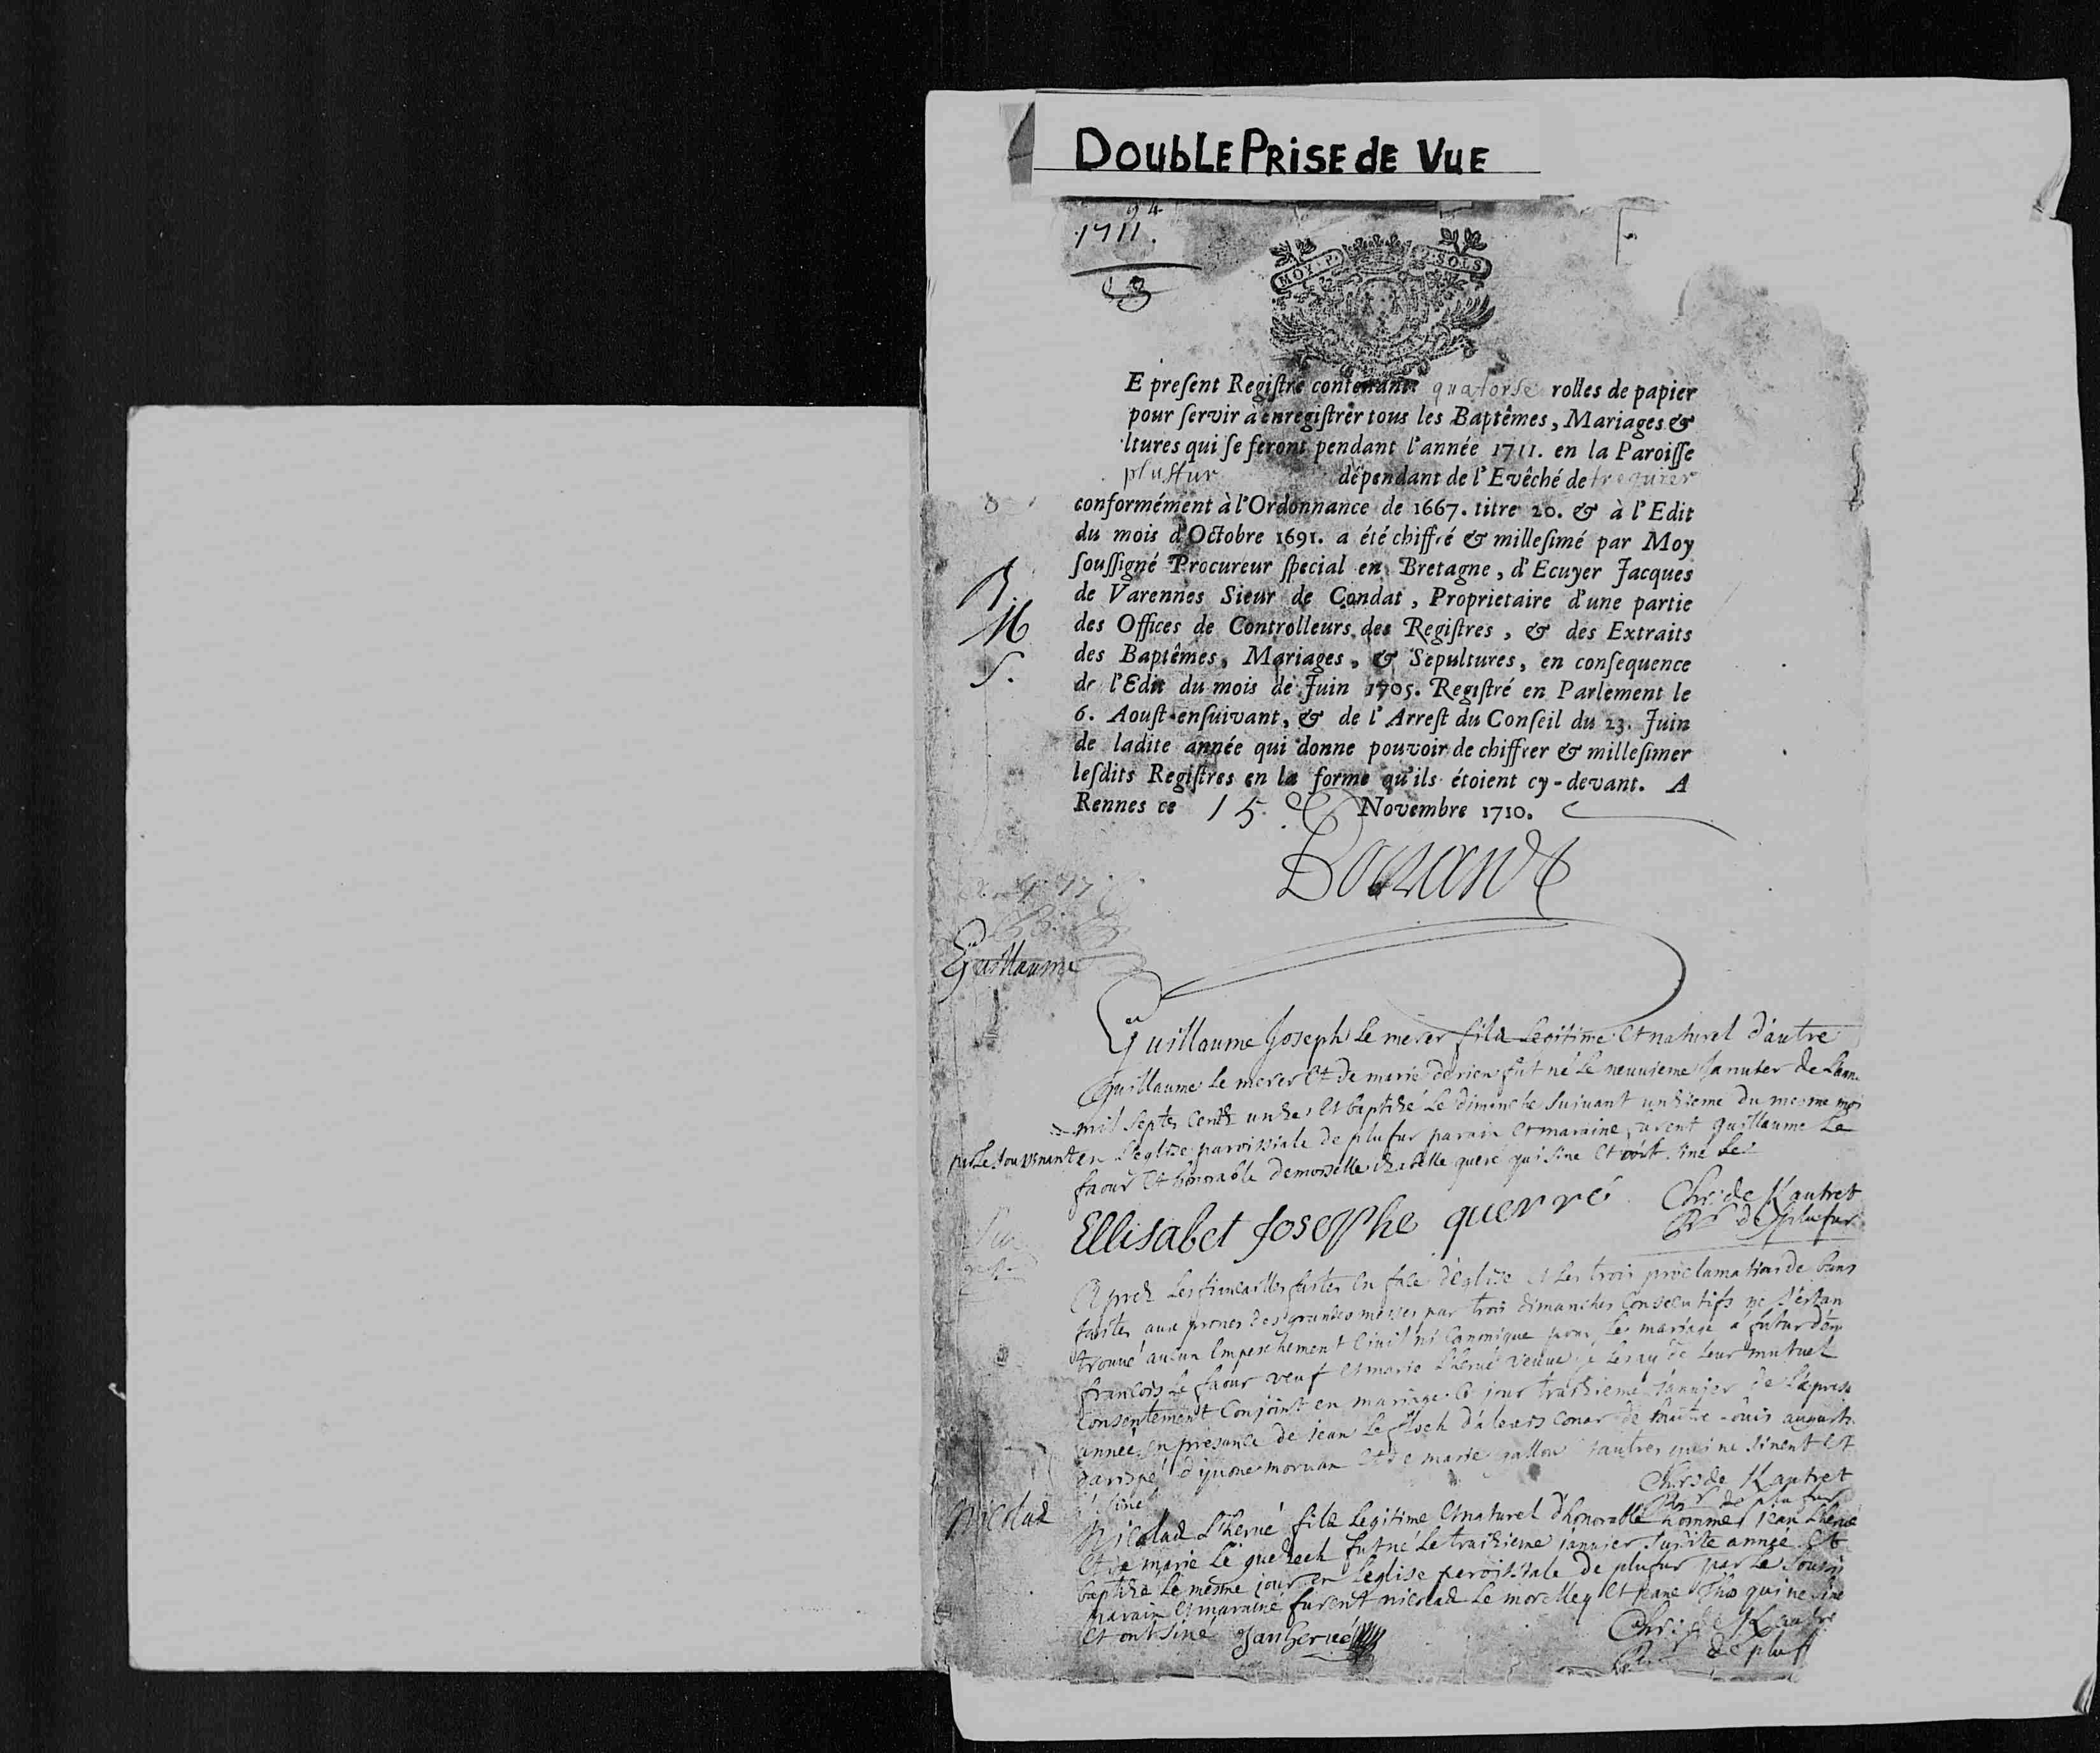 DOUBLE PRISE dE VUE
94
1711.
MOY. P. 2. SOLS
E preſent Regiſtre contenant quatorse rolles de papier
pour ſervir à enregiſtrer tous les Baptêmes, Mariages &
ltures qui ſe feront pendant l'année 1711. en la Paroiſſe
plufur dépendant de l'Evêché de treguier
conformément à l'Ordonnance de 1667. titre 20. & à l'Edit
du mois d'Octobre 1691. a été chiffré & milleſimé par Moy
ſouſſigné Procureur ſpecial en Bretagne, d'Ecuyer Jacques
de Varennes Sieur de Condat, Proprietaire d'une partie
des Offices de Controlleurs des Regiſtres, & des Extraits
des Baptêmes, Mariages, & Sepultures, en conſequence
de l'Edit du mois de Juin 1705. Regiſtré en Parlement le
6. Aouſt enſuivant, & de l'Arreſt du Conſeil du 23. Juin
de ladite année qui donne pouvoir de chiffrer & milleſimer
leſdits Regiſtres en la forme qu'ils étoient cy-devant. A
Rennes ce 15. e Novembre 1710.
B.
M
S.
Guillaume
Guillaume Joseph Le merer filz Legitime et naturel d'autre
Guillaume Le merer et de marie derien fut né Le neuuieme Januier de Lan
mil septes centz unze et baptizé Le dimanche suiuant unzieme du mesme moi
par Le souvenant en L'eglise paroissiale de plufur parain et maraine furent guillaume Le
faour et honorable demoiselle izabelle queré qui sine
Ellisabet Josephe querré
Chr: de Kautret
de plufur
Aprez Les fiançailles faites en face d'eglise et Les trois proclamations de bans
faites aux prones des grandes messes par trois dimanches consecutifs ne s'estan
trouué aucun Empeschement Ciuil ni Canonique pour Le mariage a futur d'en
francois Le faour veuf et marie L'herué veuue de Leur mutuel
Consentement Conjoint en mariage Ce jour traizieme januier de L'a presen
année en presance de jean Le floch d'alexis Conar de maitre Louis august
d'yuone moruan et de marie gallou autres qui ne sinent et
siné
Chr: de Kautret
de plufur
Nicolaz
Nicolaz L'herué filz Legitime et naturel d'honorable hommes jean L'herué
et de marie Le guezech fut né Le traizieme januier susdite année et
baptizé Le mesme jour en L'eglise paroissiale de plufur par Le soussi
parain et maraine furent nicolaz Le morelleg et jeane qui ne sine
et ont siné Jan herué
Chr: de Kautre
de pluf